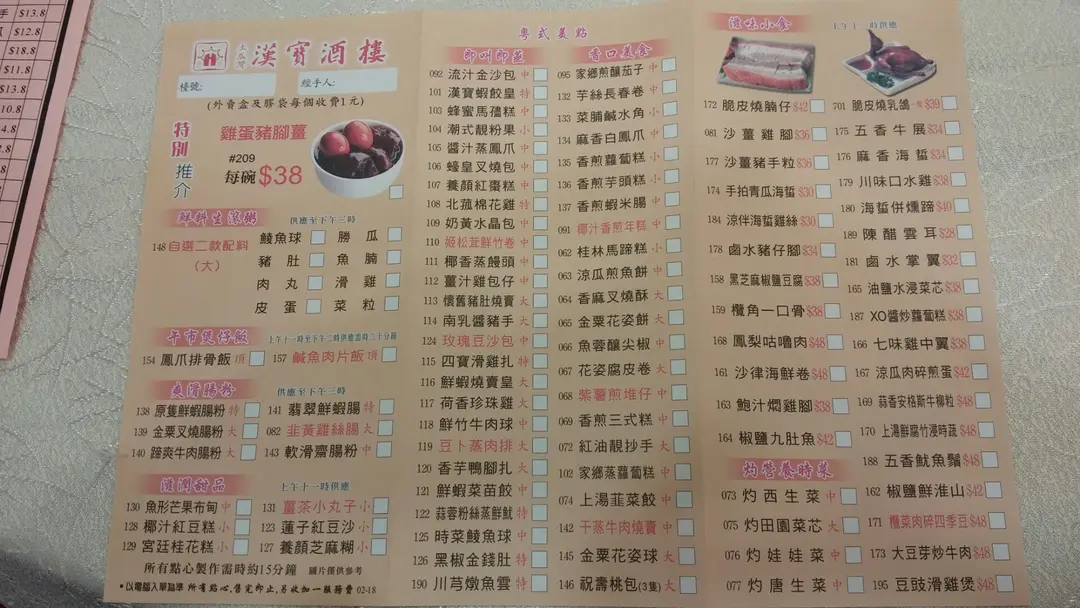 $13.8
$12.8
$18.8
$11.8
$13.8
土瓜灣 漢寶酒樓
檯號:
經手人:
(外賣盒及膠袋每個收費1元)
特別推介
雞蛋豬腳薑
#209
每碗$38
鮮料生滾粥 供應至下午三時
148 自選二款配料
(大)
鯪魚球 勝瓜
豬肚 魚腩
肉丸 滑雞
皮蛋 菜粒
午市煲仔飯 上午十一時至下午二時供應需時二十分鐘
154 鳳爪排骨飯 頂 157 鹹魚肉片飯 頂
爽滑腸粉 供應至下午三時
138 原隻鮮蝦腸粉 特 141 翡翠鮮蝦腸 特
139 金粟叉燒腸粉 大 082 韭黃雞絲腸 大
140 蹄爽牛肉腸粉 大 143 軟滑齋腸粉 中
滋潤甜品 上午十一時供應
130 魚形芒果布甸 中 131 薑茶小丸子 小
128 椰汁紅豆糕 小 123 蓮子紅豆沙 小
129 宮廷桂花糕 小 127 養顏芝麻糊 小
所有點心製作需時約15分鐘 圖片僅供參考
•以電腦入單為準 所有點心,售完即止,另收加一服務費 02-18
粵式美點
即叫即蒸
092 流汁金沙包 中
101 漢寶蝦餃皇 特
103 蜂蜜馬蹄糕 中
104 潮式靚粉果 小
105 醬汁蒸鳳爪 中
106 蠔皇叉燒包 中
107 養顏紅棗糕 中
108 北菰棉花雞 特
109 奶黃水晶包 中
110 姬松茸鮮竹卷 中
111 椰香蒸饅頭 中
112 薑汁雞包仔 中
113 懷舊豬肚燒賣 大
114 南乳醬豬手 大
124 玫瑰豆沙包 中
115 四寶滑雞扎 特
116 鮮蝦燒賣皇 大
117 荷香珍珠雞 大
118 鮮竹牛肉球 中
119 豆卜蒸肉排 大
120 香芋鴨腳扎 大
121 鮮蝦菜苗餃 中
122 蒜蓉粉絲蒸鮮魷 特
125 時菜鯪魚球 中
126 黑椒金錢肚 特
190 川芎燉魚雲 特
香口美食
095 家鄉煎釀茄子 中
132 芋絲長春卷 中
133 菜脯鹹水角 小
134 麻香白鳳爪 中
135 香煎蘿蔔糕 小
136 香煎芋頭糕 小
137 香煎蝦米腸 中
091 椰汁香煎年糕 中
062 桂林馬蹄糕 小
063 涼瓜煎魚餅 中
064 香麻叉燒酥 大
065 金粟花姿餅 大
066 魚蓉釀尖椒 中
067 花姿腐皮卷 大
068 紫薯煎堆仔 中
069 香煎三式糕 中
072 紅油靚抄手 大
102 家鄉蒸蘿蔔糕 中
074 上湯韮菜餃 中
142 干蒸牛肉燒賣 中
145 金粟花姿球 大
146 祝壽桃包(3隻) 大
滋味小食 上午十一時供應
172 脆皮燒腩仔 $42
081 沙薑雞腳 $36
177 沙薑豬手粒 $36
174 手拍青瓜海蜇 $30
184 涼伴海蜇雞絲 $30
178 鹵水豬仔腳 $34
158 黑芝麻椒鹽豆腐 $38
159 欖角一口骨 $38
168 鳳梨咕嚕肉 $48
161 沙律海鮮卷 $48
163 鮑汁燜雞腳 $38
164 椒鹽九肚魚 $42
701 脆皮燒乳鴿 一隻 $39
175 五香牛展 $34
176 麻香海蜇 $34
179 川味口水雞 $38
180 海蜇併燻蹄 $40
189 陳醋雲耳 $28
181 鹵水掌翼 $32
165 油鹽水浸菜芯 $38
187 XO醬炒蘿蔔糕 $38
166 七味雞中翼 $38
167 涼瓜肉碎煎蛋 $42
169 蒜香安格斯牛柳粒 $48
170 上湯鮮腐竹浸時蔬 $48
188 五香魷魚鬚 $48
162 椒鹽鮮淮山 $42
171 欖菜肉碎四季豆 $48
173 大豆芽炒牛肉 $48
195 豆豉滑雞煲 $48
灼營養時菜
073 灼西生菜 中
075 灼田園菜芯 大
076 灼娃娃菜 中
077 灼唐生菜 中